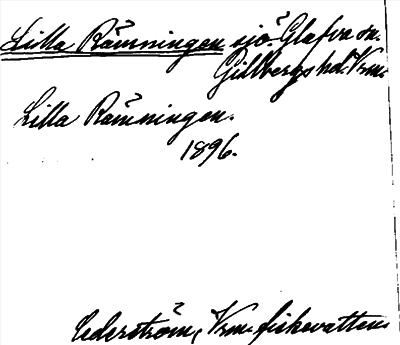 Lilla Rämningen sjö. Glafva sn.
Gillbergs hd. Vrm.
Lilla Rämningen.
1896.
Cederström, Vrm. fiskevatten